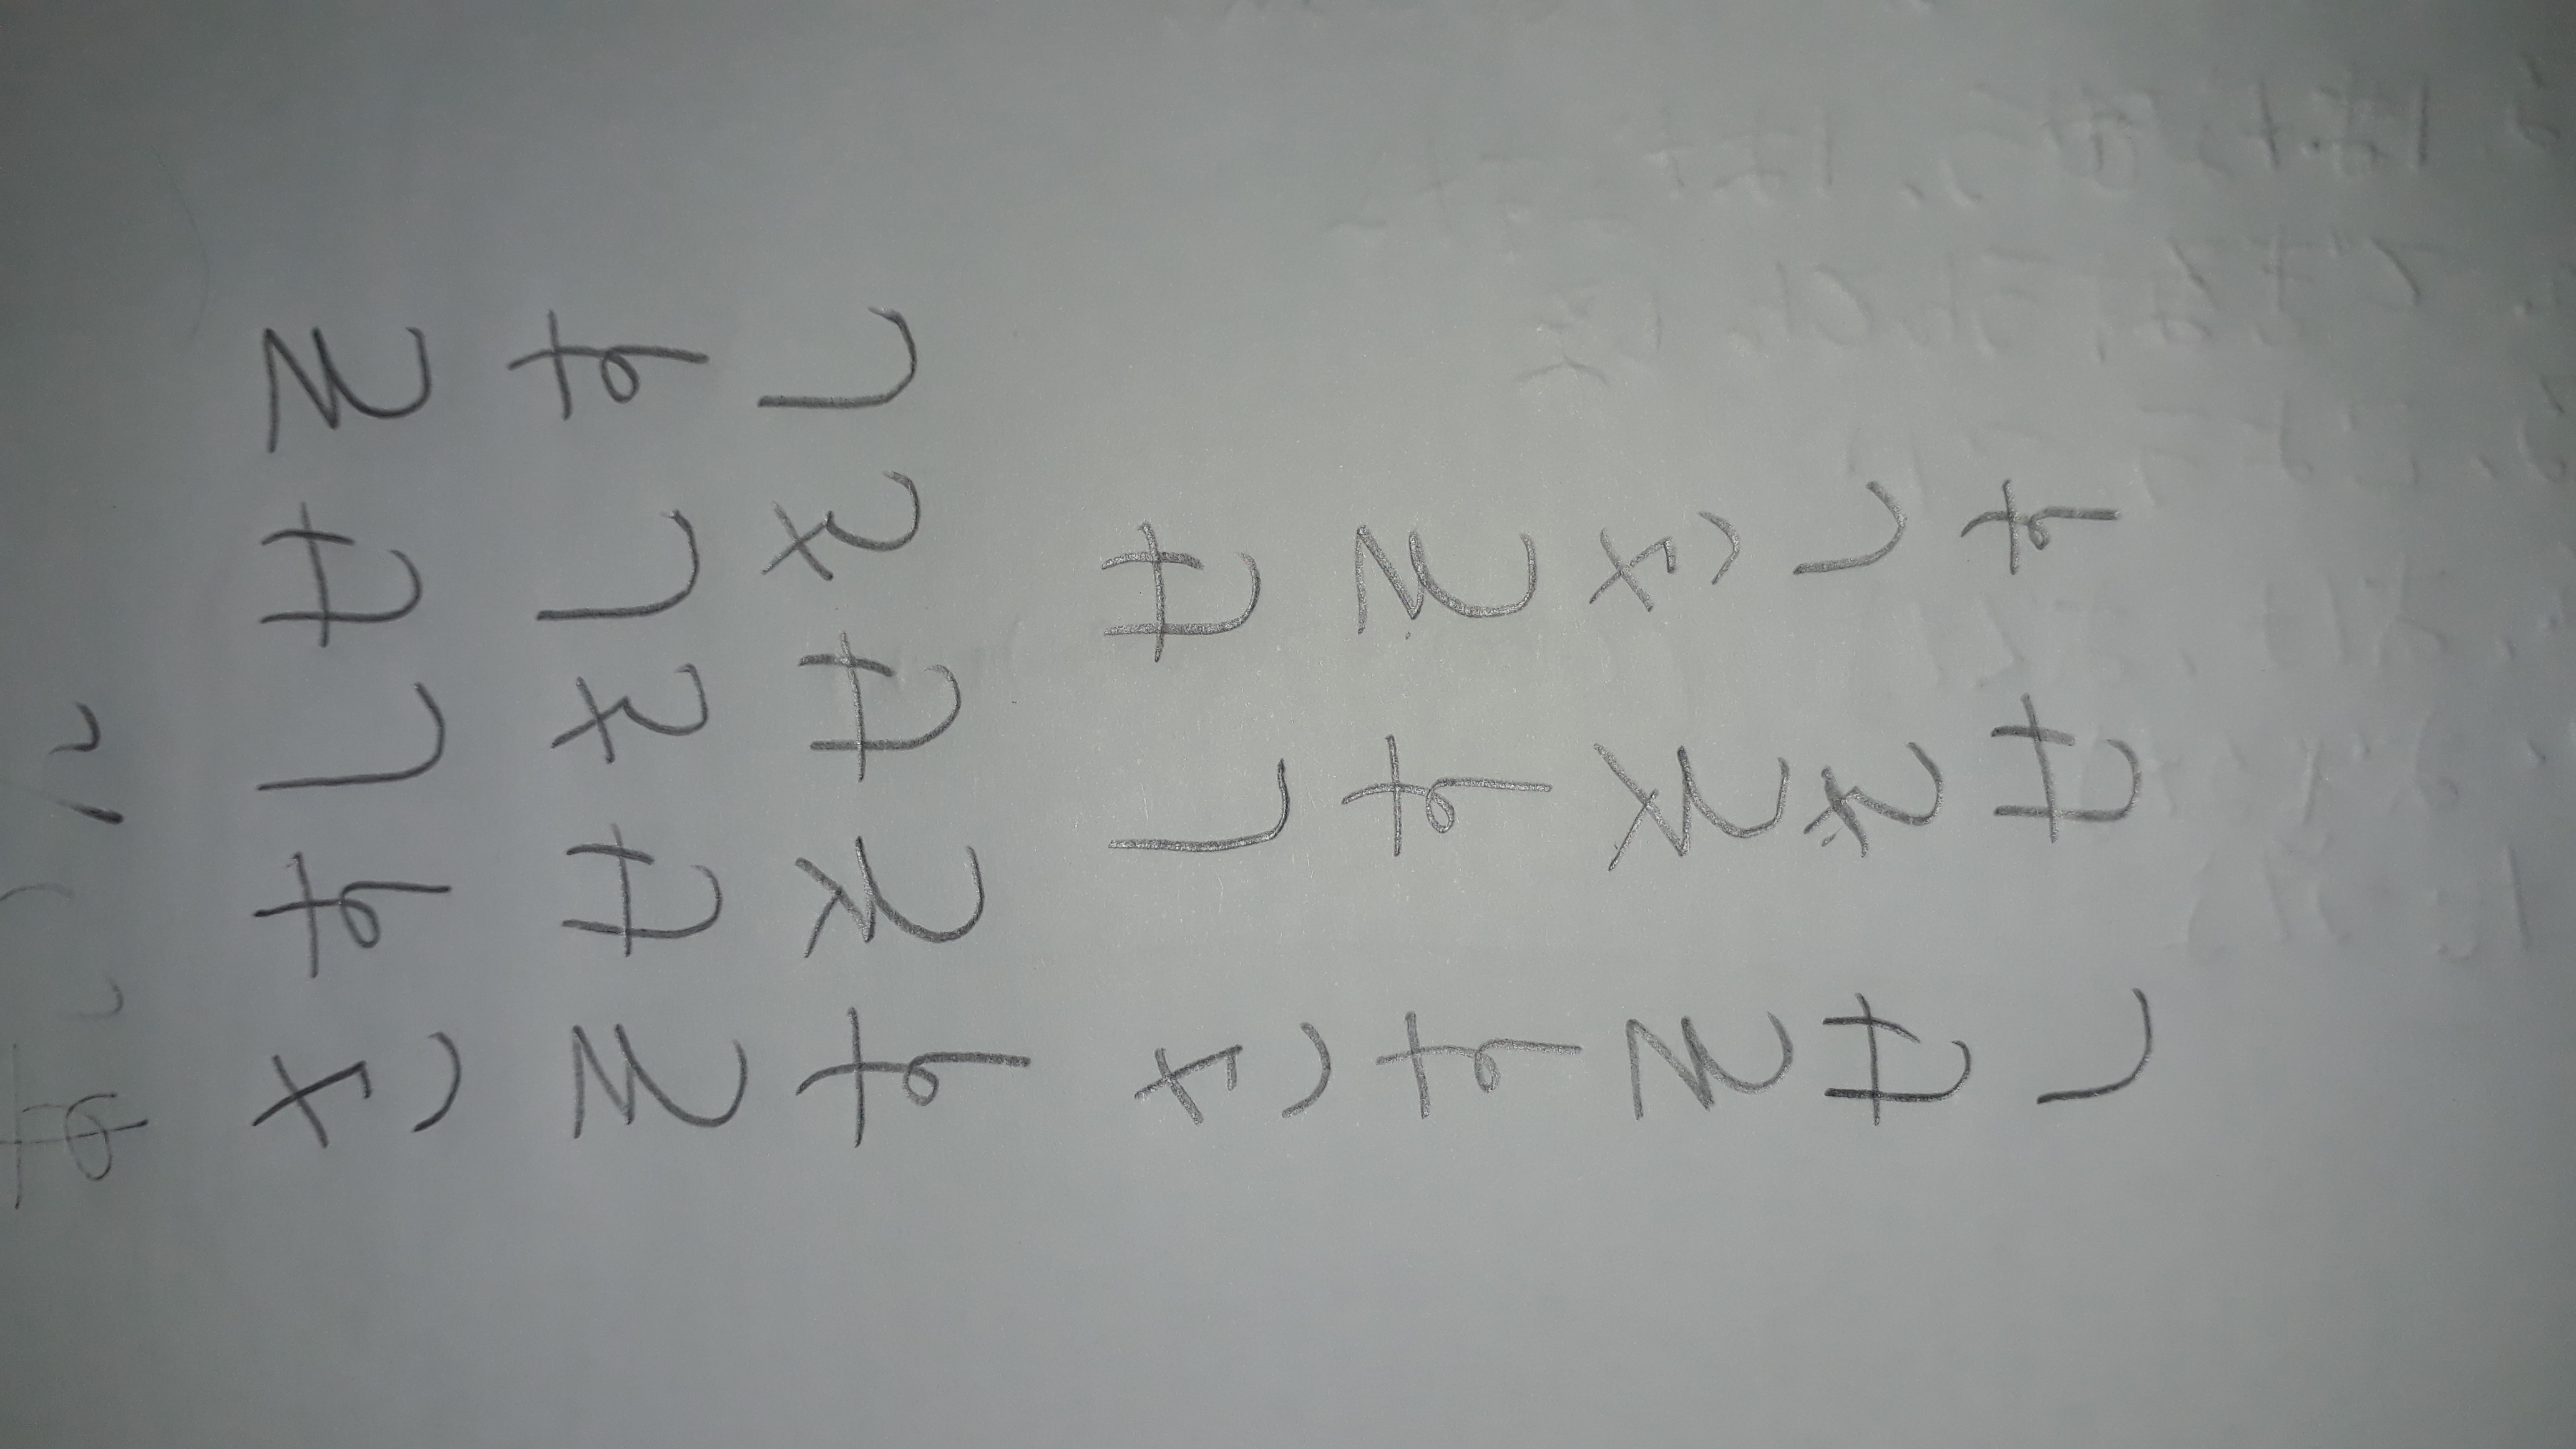 あ い
さ す し せ そ
そ せ さ し す
す そ せ さ し
さ し せ
す す そ
そ そ さ
せ さ し
し せ す